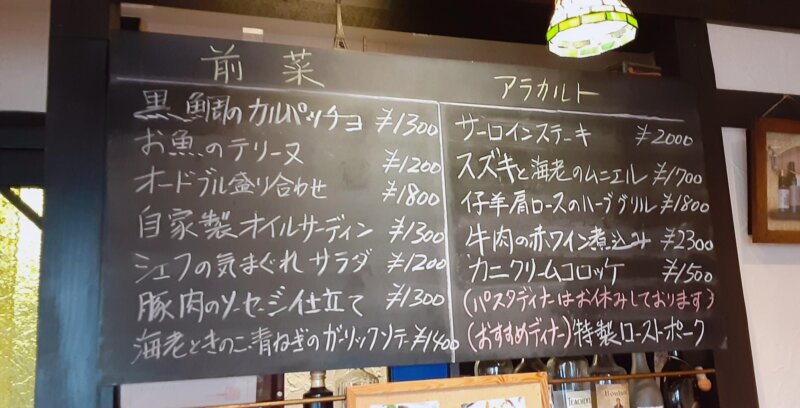 前菜
黒鯛のカルパッチョ ¥1300
お魚のテリーヌ ¥1200
オードブル盛り合わせ ¥1800
自家製オイルサーディン ¥1300
シェフの気まぐれサラダ ¥1200
豚肉のソーセージ仕立て ¥1300
海老ときのこ・青ねぎのガーリックソテー ¥1400
アラカルト
サーロインステーキ ¥2000
スズキと海老のムニエル ¥1700
仔羊肩ロースのハーブグリル ¥1800
牛肉の赤ワイン煮込み ¥2300
カニクリームコロッケ ¥1500
(パスタディナーはお休みしております)
(おすすめディナー)特製ローストポーク
TEACHER'S